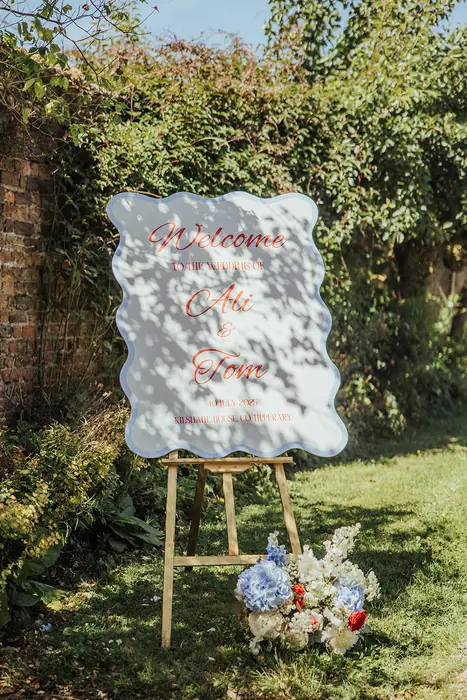 Welcome
TO THE WEDDING OF
Ali
&
Tom
10 JULY 2025
KILSHANE HOUSE, CO TIPPERARY